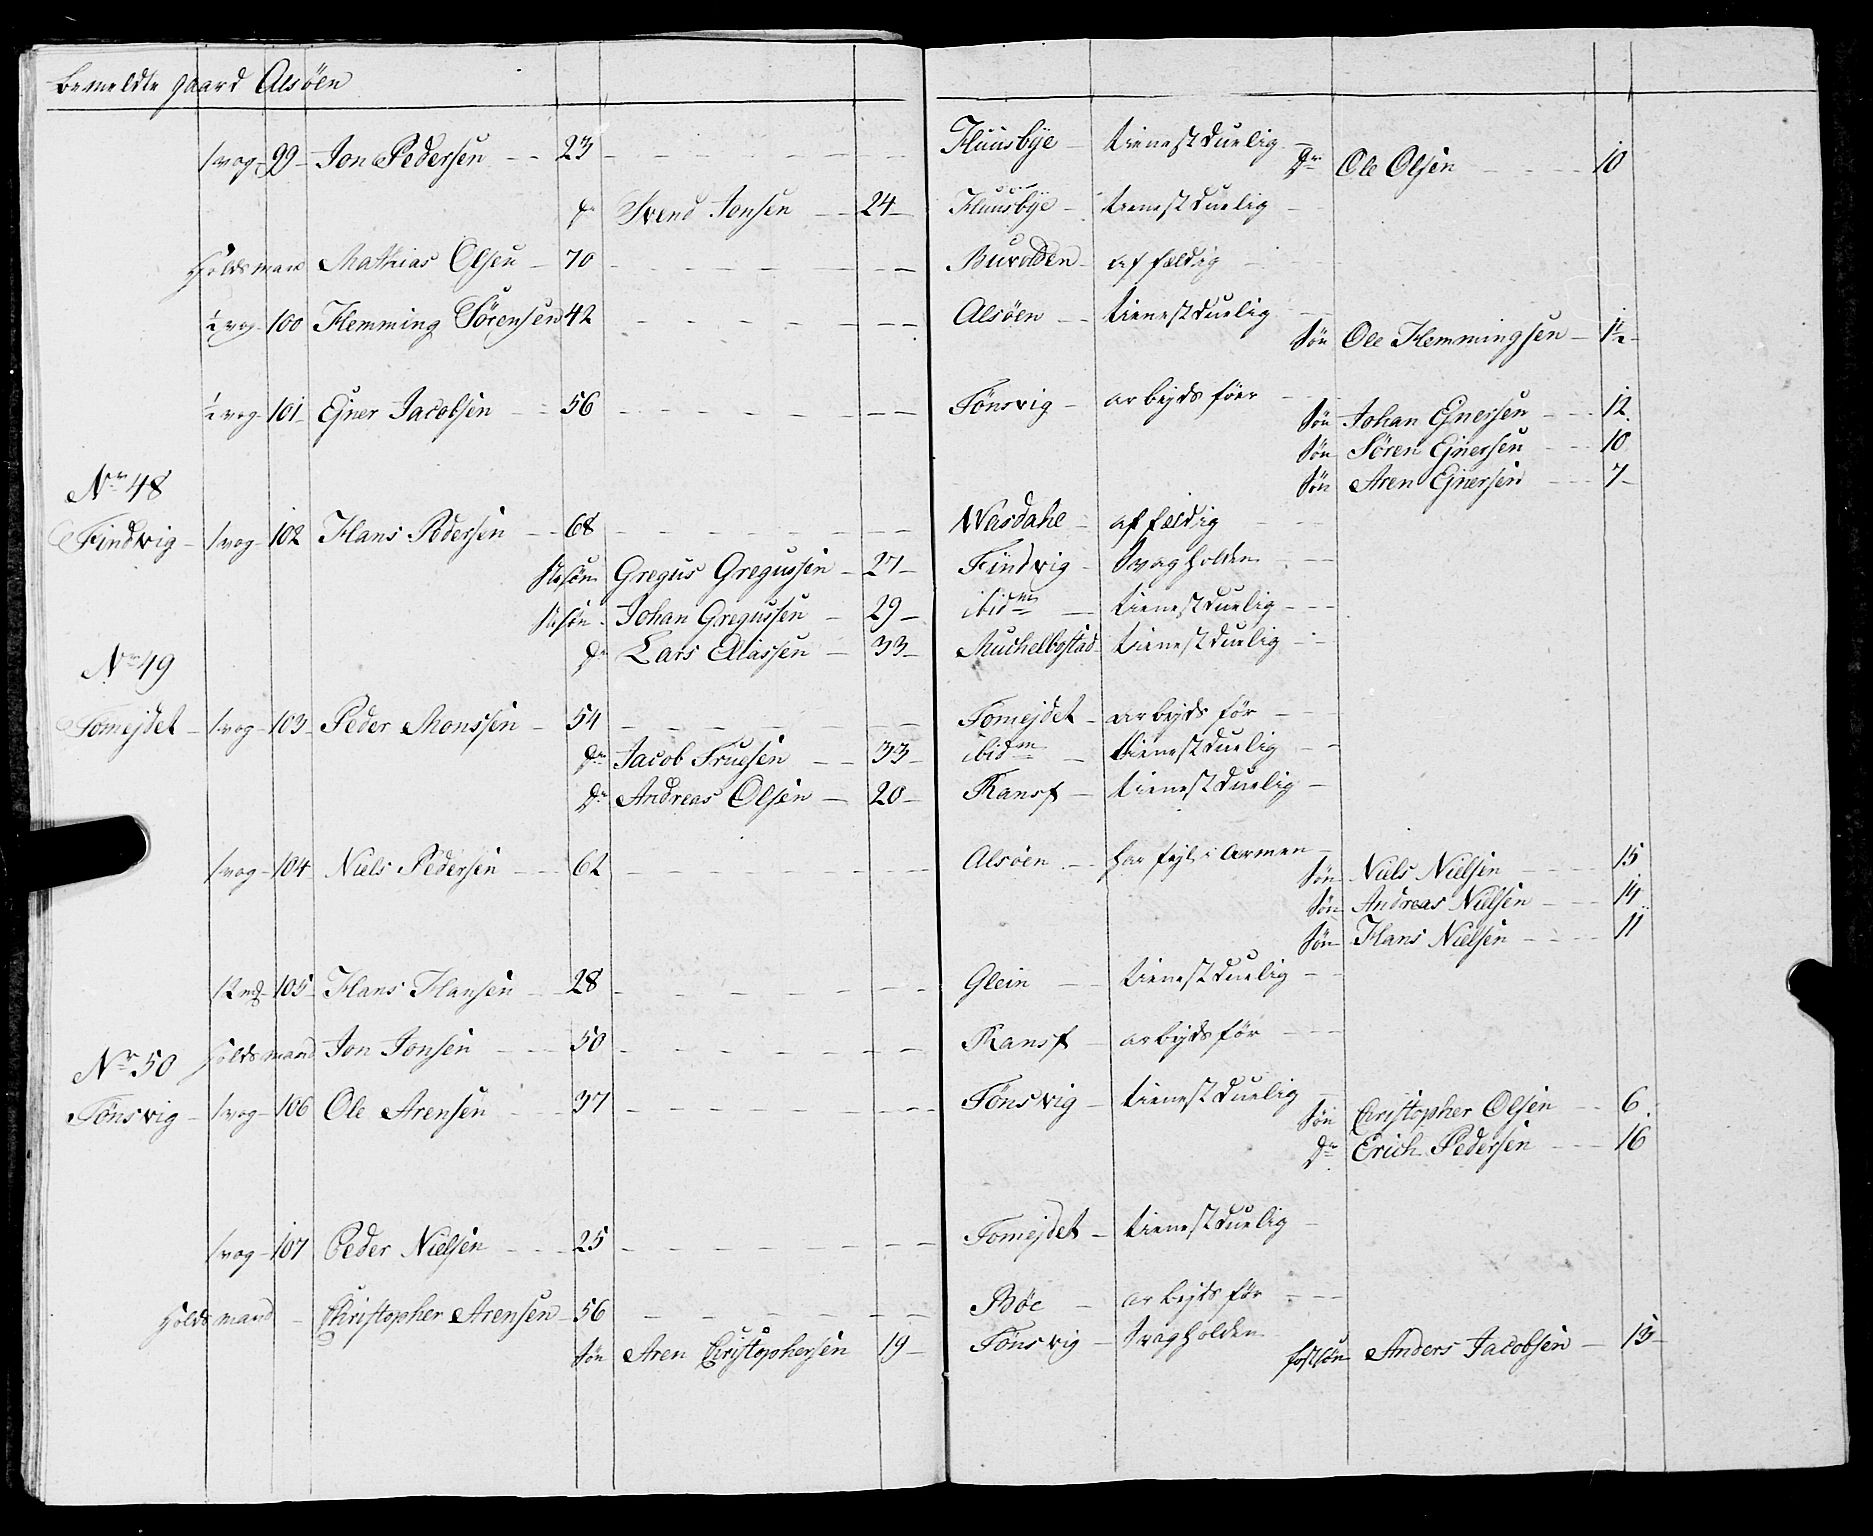 bemeldte gaard Alsøen
1 vog 99 Jon Pedersen 23 Huusbye tienestduelig
dr Ole Olsen 10
dr Svend Jonsen 24 Huusbye tienestduelig
Holdsmand Mathias Olsen 70 affældig
½ vog 100 Hemming Sörensen 42 Alsøen tienestduelig
Søn Ole Hemmingsen 1½
½ vog 101 Ejner Jacobsen 56 Tønsvig arbejdsföer
Søn Johan Ejnersen 12
Søn Sören Ejnersen 10
Søn Aren Ejnersen 7
No 48
Findvig 1 vog 102 Hans Pedersen 68 Wasdahe affældig
Stsøn Gregus Gregussen 27 Findvig Svagholden
Stsøn Johan Gregussen 29 ibidm tienestduelig
dr Lars Eliassen 33 Muchelbostad tienestduelig
No 49
Tomejdet 1 vog 103 Peder Monssen 54 Tomejdet arbejdsför
dr Jacob Truesen 33 ibidm tienestduelig
dr Andreas Olsen 20 Ransf tienestduelig
1 vog 104 Niels Pedersen 62 Alsøen har fejl i Armen
Søn Niels Nielsen 15
Søn Andreas Nielsen 14
Søn Hans Nielsen 11
12 mk 105 Hans Hansen 28 Glein tienestduelig
Holdsmand Jon Jonsen 50 Ransf arbejdsför
Nr 50
Tønsvig 1 vog 106 Ole Arensen 37 Tønsvig tienestduelig
Søn Christopher Olsen 6
dr Erich Pedersen 16
1 vog 107 Peder Nielsen 25 Tomejdet tienestduelig
Holdsmand Christopher Arensen 56 Bøe arbejdsför
Søn Aren Christophersen 19 Tønsvig Svagholden
fostsøn Anders Jacobsen 13